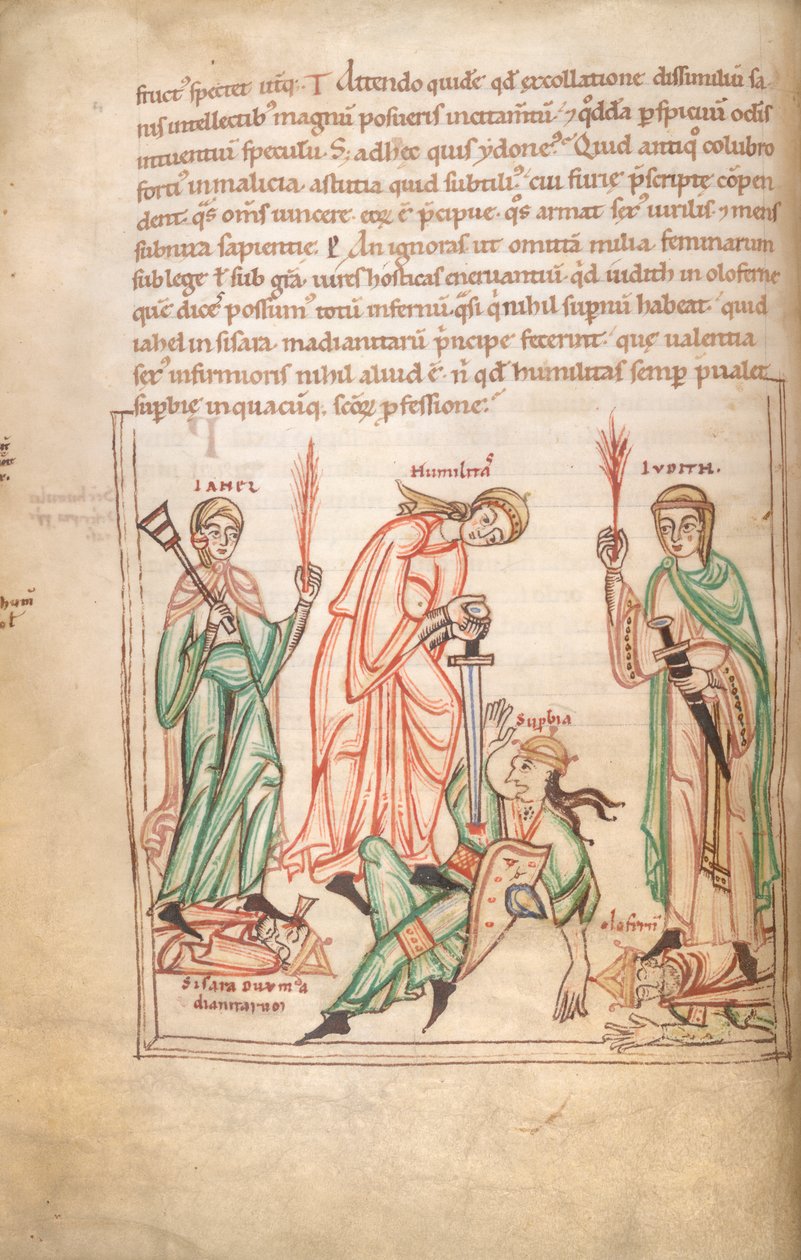 fruct᷒ spectet utiq᷒. T Attendo quidē qđ ex collatione dissimiliū sa
nis intellectib᷒ magnū posueris incitam̄tū. ⁊ qđdā p̲spicuū oculis
intuentiū speculū. S; ad hec quis ydone᷒? Quid antiq᷒ colubro
forti᷒ in malicia. astutia quid subtili᷒? cui furie p̄scripte cōpen
dent. qͣs om̄s uincere. eoꝝ ē p̄cipue. qͦs armat sex᷒ uirilis. ⁊ mens
subnixa sapientie. P An ignoras ut omittā milia feminarum
sub lege ł sub grā. uires hosticas eneruantiū. qͥd iudith in oloferne
quē dicere possum᷒ totū infernū. qͣsi qͥ nihil supernū habeat. quid
iahel in sisara. madianitarū p̄ncipe fecerint. que ualentia
sex᷒ infirmioris nihil aliud ē. nͥ qđ humilitas semper p̄ualet
superbie in quacūq; scōꝝ p̲fessione.
IAHEL
Humilitas
IVDITH.
Sup̲bia
olofernꝰ
SISARA DUX Ma
dianitaruɱ